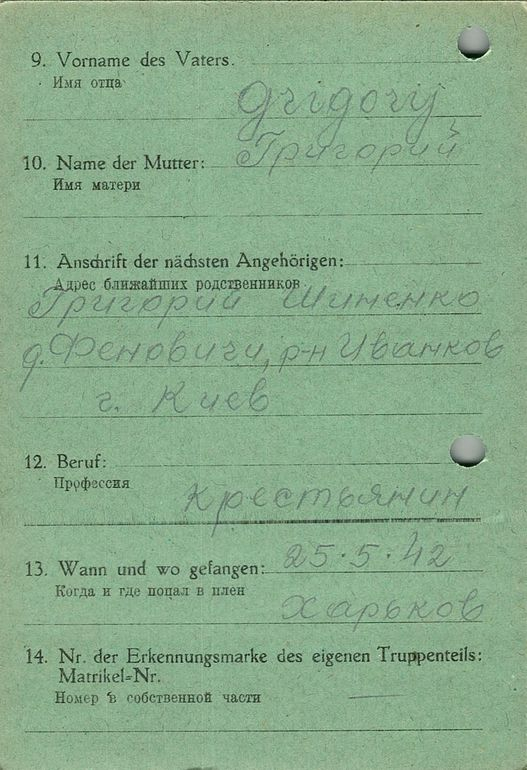 9. Vorname des Vaters.
Имя отца
Grigorij
Григорий
10. Name der Mutter:
Имя матери
11. Anschrift der nächsten Angehörigen:
Адрес ближайших родственников
Григорий Шиненко
д. Феновичи, р-н Иванков
г. Киев
12. Beruf:
Профессия
крестьянин
13. Wann und wo gefangen: 25.5.42
Когда и где попал в плен
Харьков
14. Nr. der Erkennungsmarke des eigenen Truppenteils:
Matrikel=Nr.
Номер в собственной части —